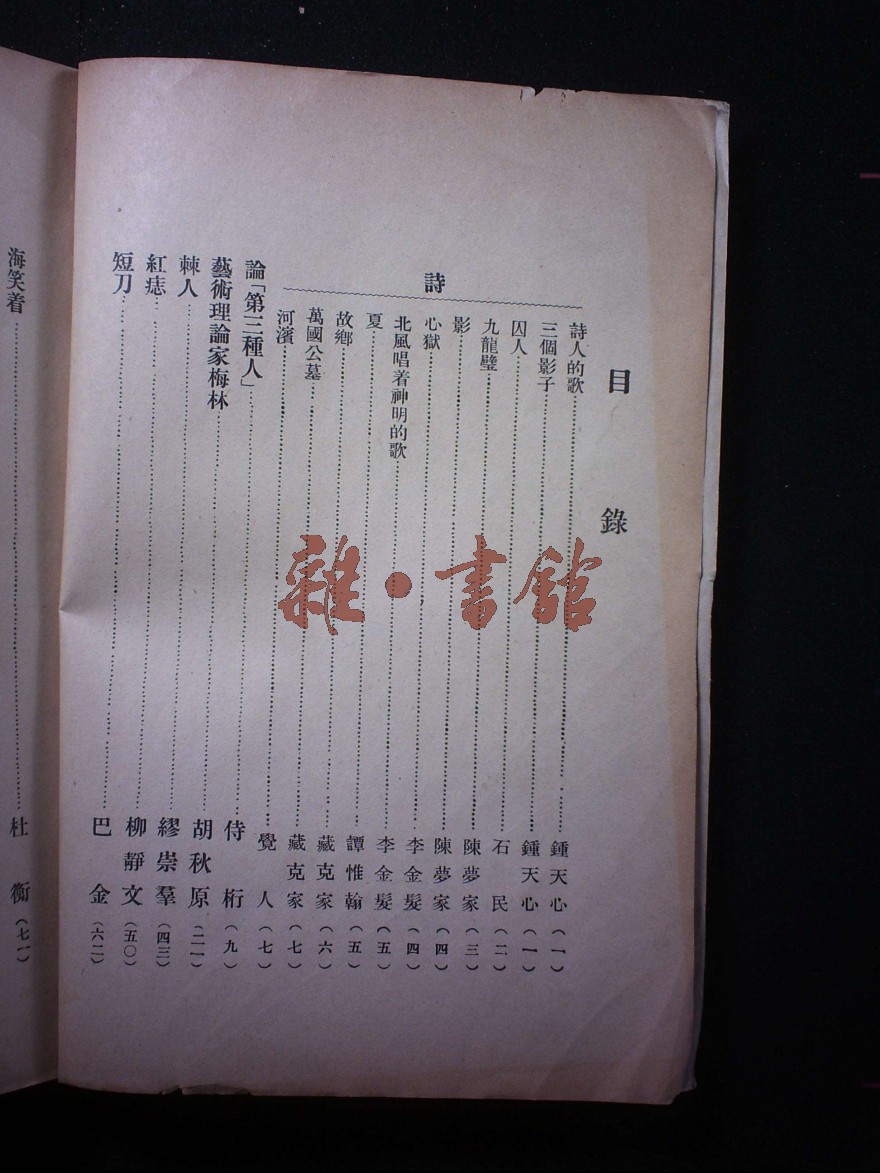 目錄
詩
詩人的歌……鍾天心(一)
三個影子……鍾天心(一)
囚人……石民(二)
九龍璧……陳夢家(三)
影……陳夢家(四)
心獄……李金髮(四)
北風唱著神明的歌……李金髮(五)
夏……譚惟翰(五)
故鄉……藏克家(六)
萬國公墓……藏克家(七)
河濱……覺人(七)
論「第三種人」……侍桁(九)
藝術理論家梅林……胡秋原(二一)
棘人……繆崇羣(四三)
紅痣……柳靜文(五〇)
短刀……巴金(六二)
海笑着……杜衡(七一)
雜·書館